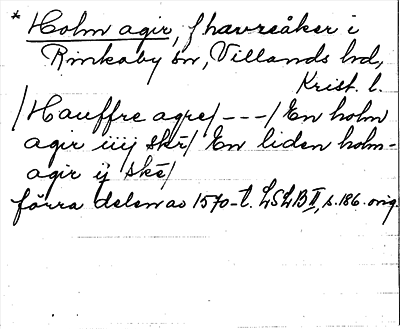 * Holm agir, f havreåker i
Rinkaby sn, Villands hd,
Krist. l.
/Hauffre agre/ - - - / En holm
agir iiij skē/ En liden holm-
agir ij skē/
förra delen av 1570-t. LSLB II, s. 186. orig.